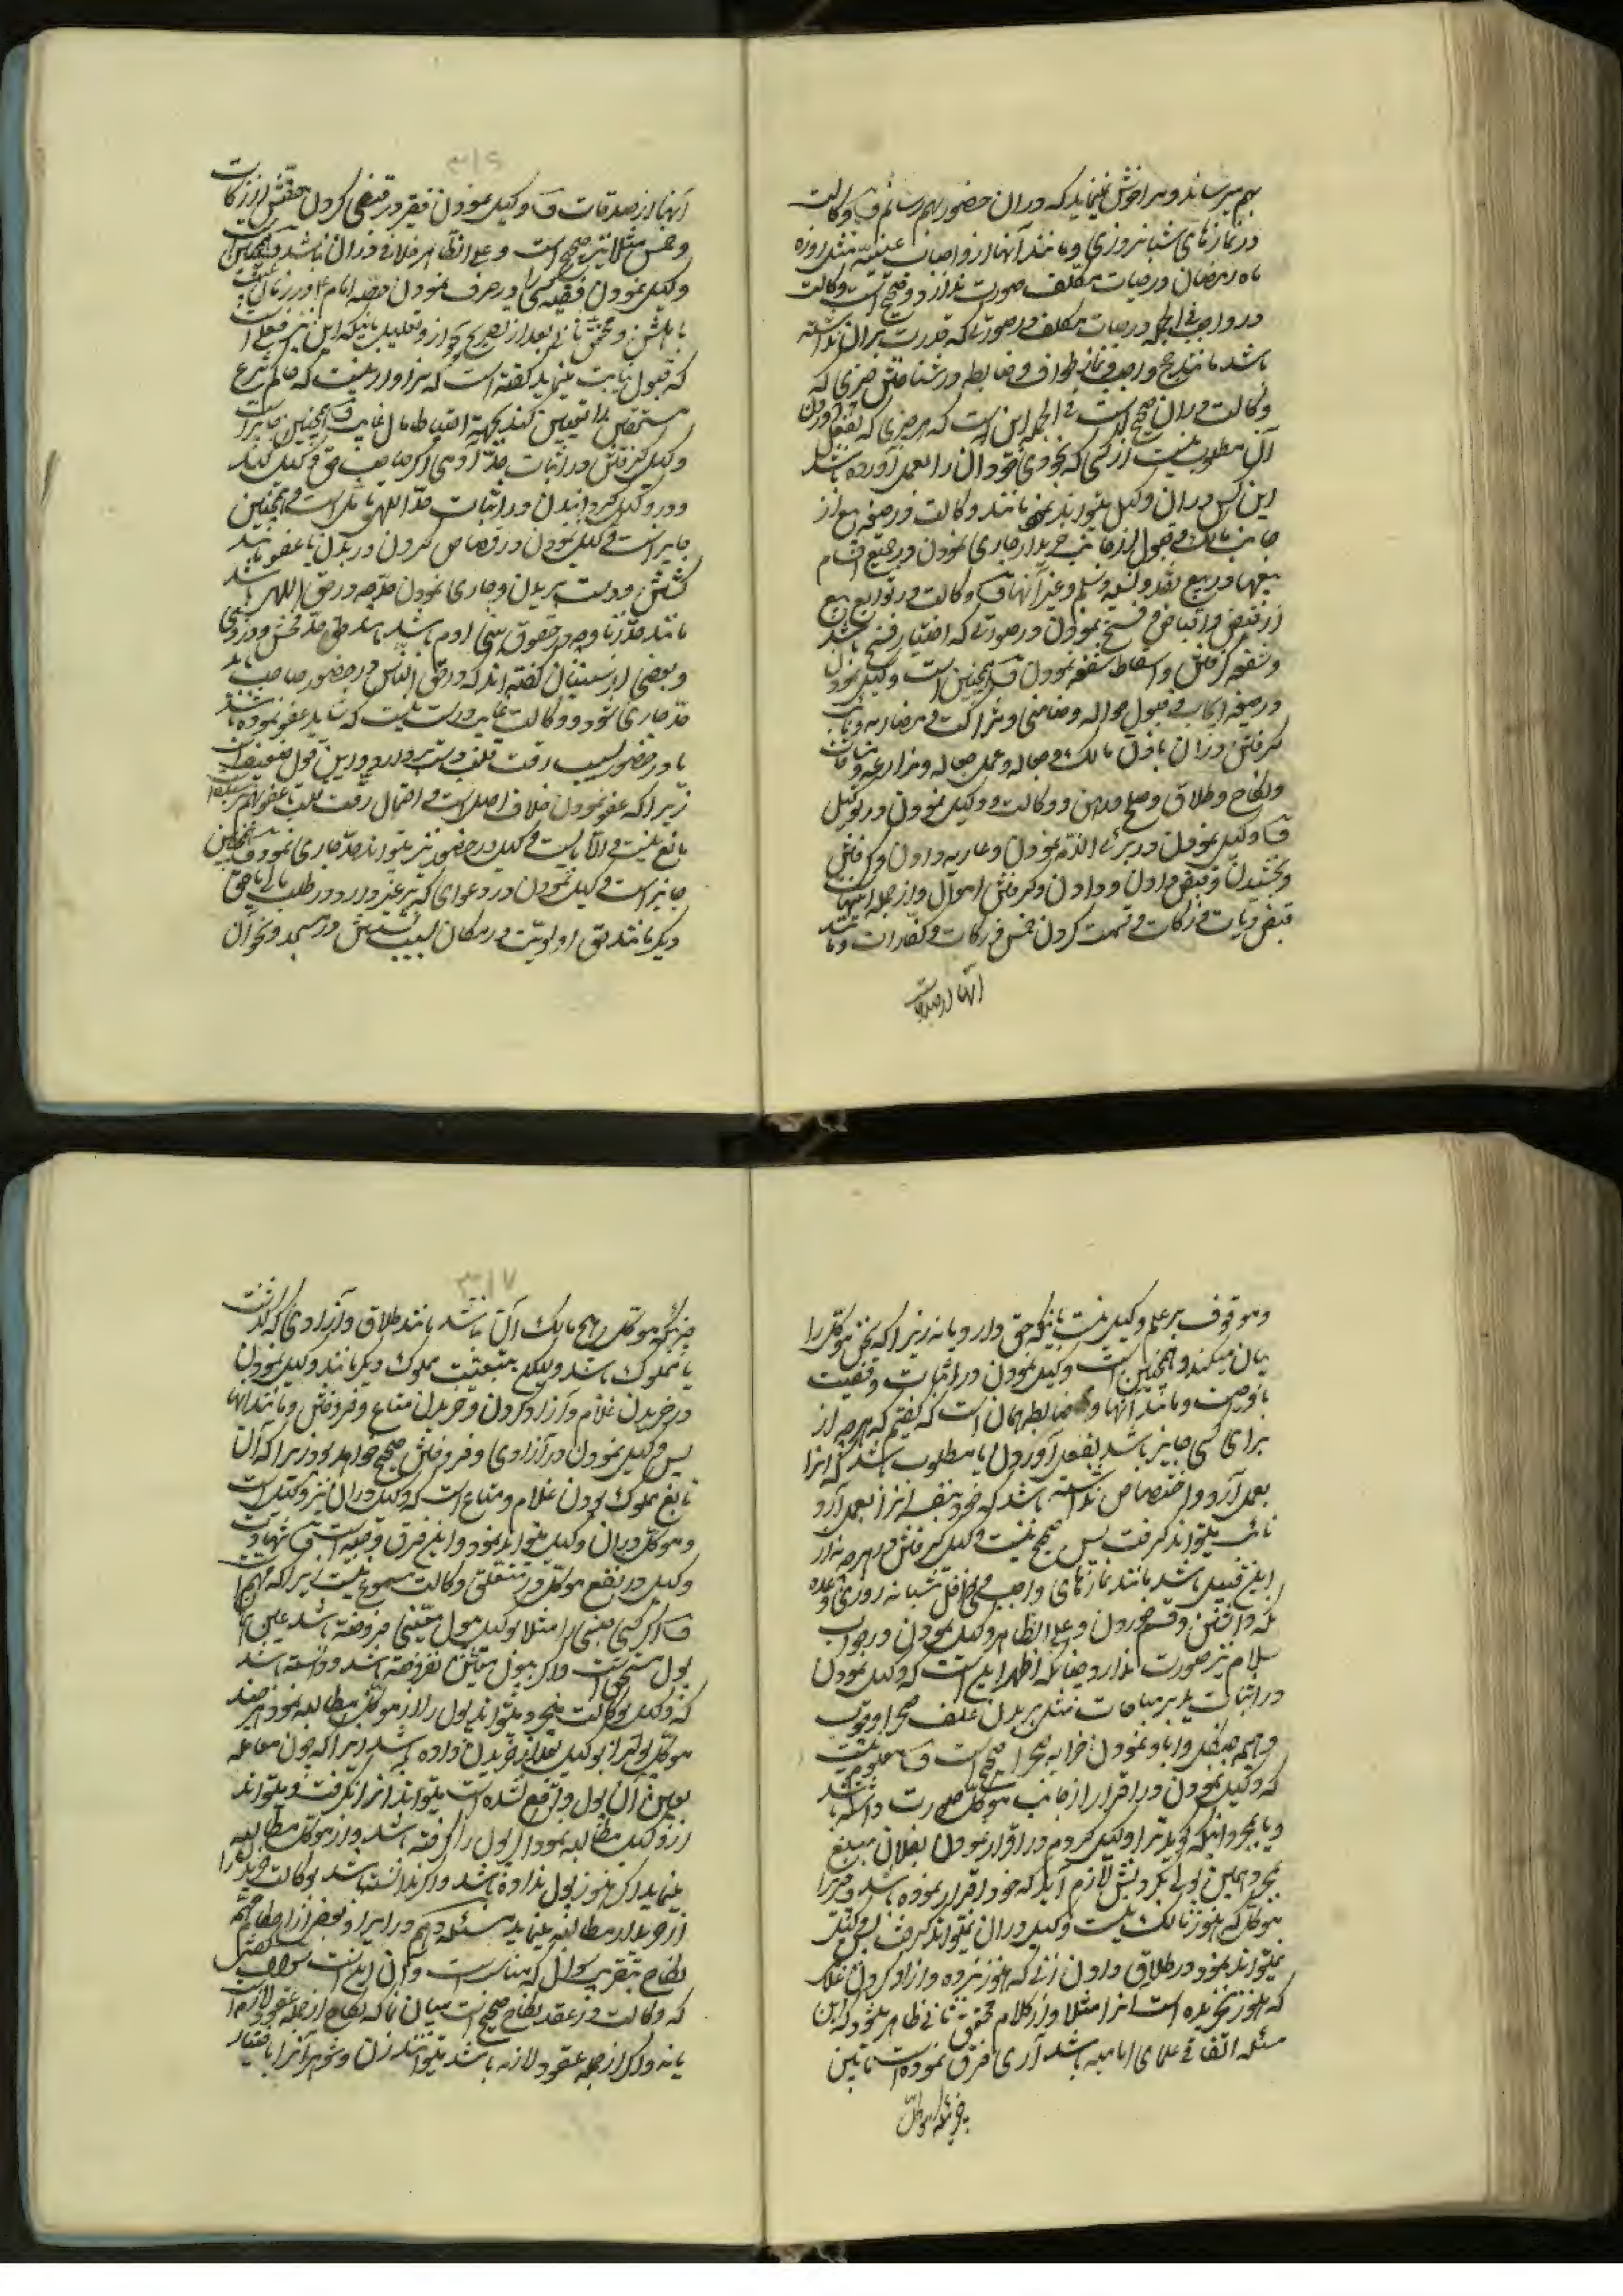 بهم میرساند و مرا خوش نمیآید که در آن حضور بهم رسانم و وکالت
در نمازهای شبانروزی و مانند آنها از واجبات عینیه مثل روزه
ماه رمضان در حیات مکلف صورت ندارد و صحیح است وکالت
در واجب فی الجمله در حیات مکلف در صورتیکه قدرت بر آن نداشته
باشد مانند حج واجب و نماز طواف و ضابطه در شناختن چیزی که
وکالت در آن صحیح است فی الجمله این است که هر چیزی که بفعل آوردن
آن مطلوب نیست از کسی که بخودی خود آن را بعمل آورده باشد
این کس در آن وکیل میتواند نمود مانند وکالت در صیغه بیع از
جانب مالک و قبول از جانب خریدار و جاری نمودن در جمیع اقسام
بیعها در بیع نقد و نسیه و سلم و غیر آنها و وکالت در توابع بیع
از قبض و اقباض و فسخ نمودن در صورتیکه اختیار فسخ باشد
و شفعه گرفتن و اسقاط شفعه نمودن و همچنین است وکیل نمودن
در صیغه ایجاب و قبول حواله و ضامنی و شراکت و مضاربه و
گرفتن در آن باذن مالک و جعاله و عمل جعاله و مزارعه و مساقات
و نکاح و طلاق و صلح و رهن و وکالت و وکیل نمودن در توکیل
و وکیل نمودن در بریء الذمه نمودن و عاریه دادن و گرفتن
و بخشیدن و قبض دادن و دادن و گرفتن اموال و از جمله اینهاست
قبض دیات و زکات و قسمت کردن خمس و زکات و کفارات و مانند
آنها از صدقات
۳۱۶
آنها از صدقات و وکیل نمودن فقیر در قبض کردن حقش از زکات
و خمس مثلا نیز صحیح است و علی الظاهر خلافی در آن نباشد و همچنین است
وکیل نمودن فقیه کسی را در صرف نمودن حصه امام ع در زمان غیبت
باهلش و محقق ثانی بعد از تصریح بجواز و تعلیل باینکه این نیز فعلی است
که قبول نیابت مینماید گفته است که سزاوار نیست که حاکم شرع
مستحقین را تعیین کند بجهة احتیاط مال غایب و همچنین جایز است
وکیل گرفتن در اثبات حد آدمی اگر صاحب حق وکیل کند
و در وکیل گردانیدن در اثبات حد اللهی تأمل است و همچنین
جایز است وکیل نمودن در قصاص کردن در بدل یا عضو مانند
کشتن و دست بریدن و جاری نمودن حد چه در حق اللهی باشد
مانند حد زنا و چه در حقوق بنی آدم باشد مانند حد فحش و دزدی
و بعضی از سنیان گفته اند که در حق الناس در حضور صاحب باید
حد جاری شود و وکالت غایب درست نیست که شاید عفو نموده باشد
یا در حضور بسبب رقت قلب دست بردارد و این قول ضعیف است
زیرا که عفو نمودن خلاف اصل است و احتمال رقت قلب یا عفو بهم
مانع نیست و الا بایست وکیل در حضور نیز نتواند حد جاری نمود و همچنین
جایز است وکیل نمودن در دعوای که بر غیر دارد در طلب مال یا حق
دیگر مانند حق اولویت در مکان بسبب پیشی در مسجد و نحو آن
و موقوف بر علم وکیل نیست باینکه حق دارد یا نه زیرا که سخن موکل را
بیان میکند و همچنین است وکیل نمودن در اثبات وقفیت
یا وصیت و مانند آنها و ضابطه همان است که گفتیم که هر چه از
برای کسی جایز باشد بفعل آوردن یا مطلوب باشد که آنرا
بعمل آرد و اختصاص نداشته باشد که خود بنفسه آنرا بعمل آرد
نایب میتواند گرفت پس صحیح نیست وکیل گرفتن در هر چه نه از
این قبیل باشد مانند نمازهای واجبی و نوافل شبانه روزی و روزه
نگه داشتن و قسم خوردن و علی الظاهر وکیل نمودن در جواب
سلام نیز صورت ندارد چنانکه اظهر این است که وکیل نمودن
در اثبات ید بر مباحات مثل بریدن علف صحرا و چوب
و هیمه جنگل و آباد نمودن خرابه صحرا صحیح است و معلوم نیست
که وکیل نمودن در اقرار از جانب موکل صورت داشته باشد
و یا بمجرد اینکه گوید ترا وکیل کردم در اقرار نمودن بفلان مبلغ
بمجرد همین بوکیل کردنش لازم آید که خود اقرار نموده باشد و چیزیرا
موکل که هنوز مالک نیست وکیل در آن نمیتواند گرفت پس وکیل
نمیتواند نمود در طلاق دادن زنی که هنوز نبرده و آزاد کردن غلامی
که هنوز نخریده است آنرا مثلا و از کلام محقق ثانی ظاهر میشود که این
مسئله اتفاقی علمای امامیه باشد آری فرق نموده است مابین
چیزیکه موکل
۳۱۷
چیزیکه موکل هیچ مالک آن نباشد مانند طلاق و آزادی که گذشت
یا مملوک باشد ویرا بتبعیت مملوک دیگر مانند وکیل نمودن
در خریدن غلام و آزاد کردن و خریدن متاع و فروختن و مانند آنها
پس وکیل نمودن در آزادی و فروختن صحیح خواهد بود زیرا که آن
تابع مملوک بودن غلام و متاع است که وکیل در آن نیز وکیل است
و موکل در آن وکیل میتواند نمود و این فرق وجیه است و شهادت
وکیل در نفع موکل در متعلق وکالت مسموع نیست زیرا که متهم است
و اگر کسی جنسی را مثلا بوکیل بپول معینی فروخته باشد عین آن
پول مستحق است و اگر بپول معین نفروخته باشد و دانسته باشد
که وکیل بوکالت میخرد میتواند پول را از موکل مطالبه نمود هر چند
موکل پول را بوکیل بعد از خریدن داده باشد زیرا که چون معامله
بعین آن پول واقع نشده است میتواند آنرا نگرفت و میتواند
از وکیل مطالبه نمود اگر پول را گرفته باشد و از موکل مطالبه
مینماید اگر هنوز پول نداده باشد و اگر ندانسته باشد بوکالت خرید را
از خریدار مطالبه مینماید مسئله دهم در ایراد بعضی از احکام مهمه
نکاح بتقریب سؤال که مناسبست و آن این است سؤال
که وکالت در عقد نکاح صحیح است بیان نما که نکاح از جمله عقود لازم است
یا نه و اگر از جمله عقود لازمه باشد میتوانند زن و شوهر آنرا باختیار